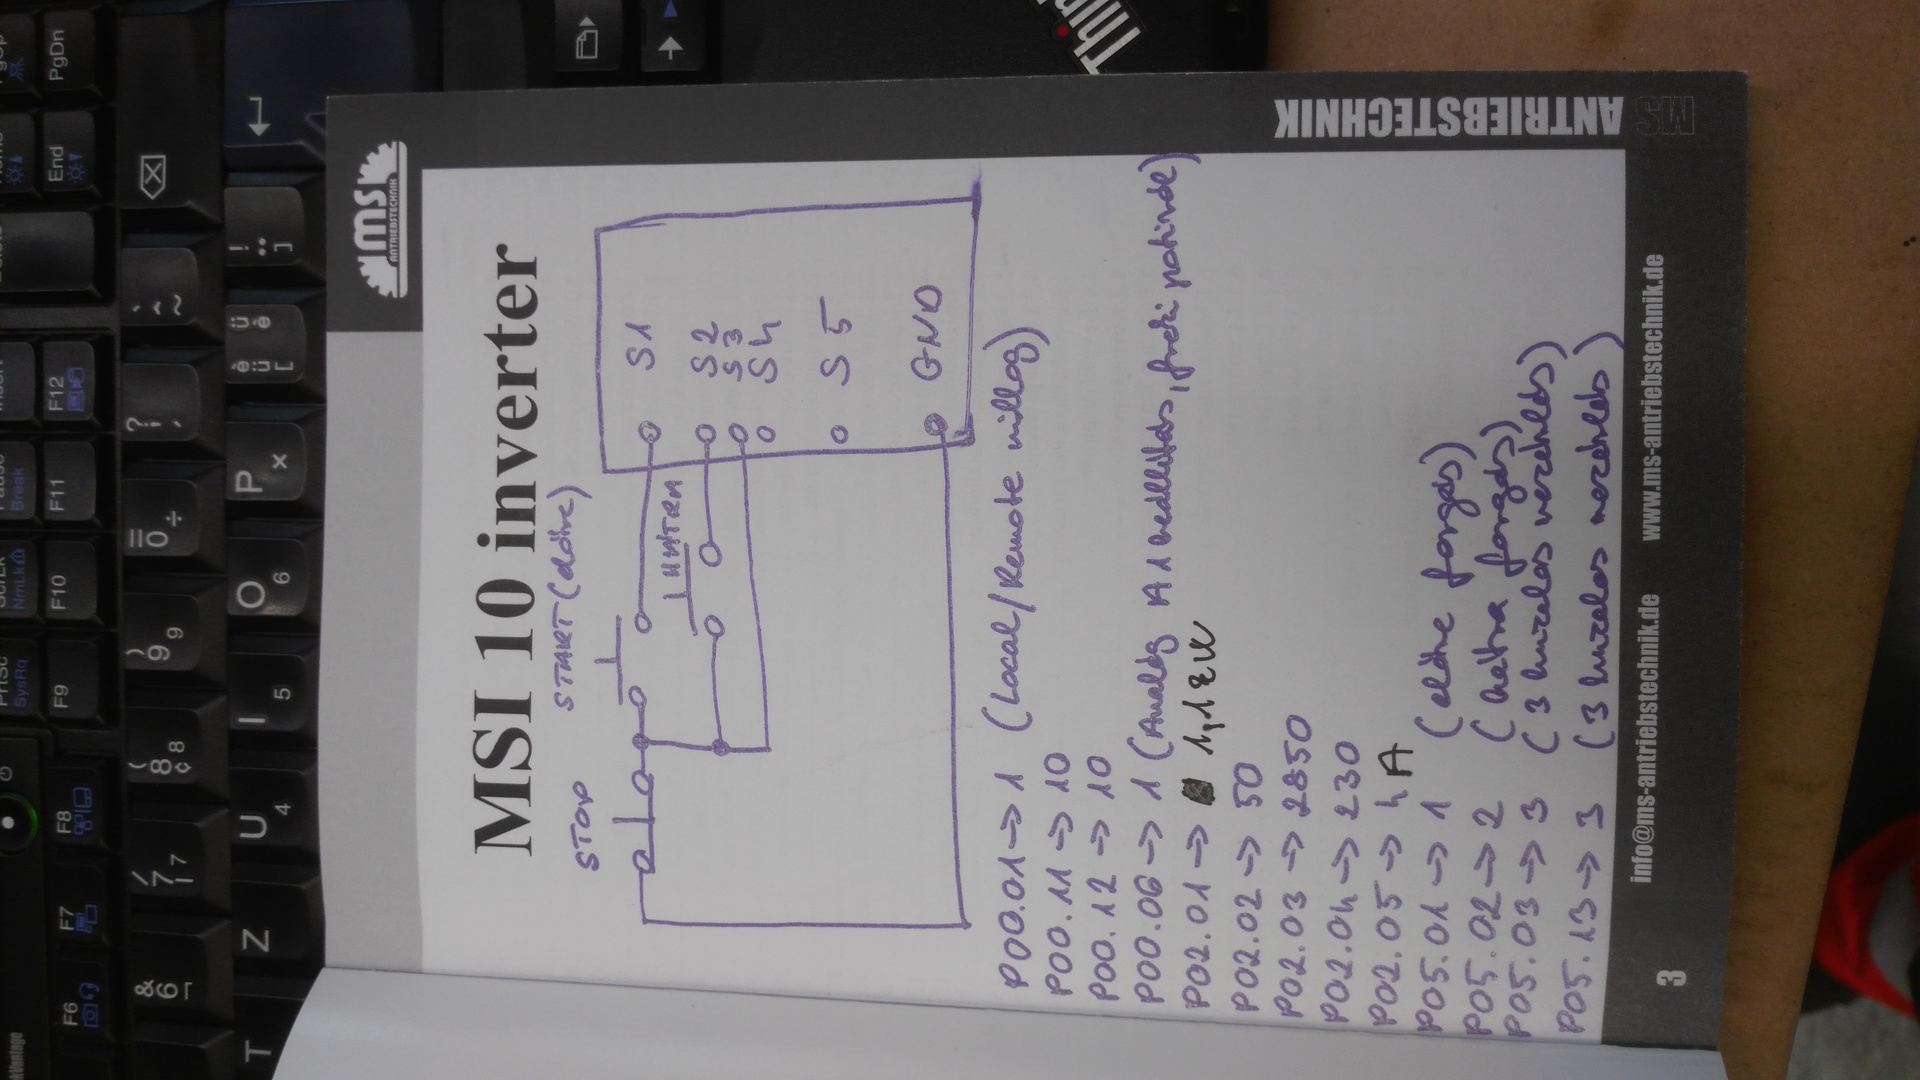 ms
ANTRIEBSTECHNIK
MSI 10 inverter
STOP START (előre)
HÁTRA
S1
S2
S3
S4
S5
GND
P00.01 → 1 (Local/Remote
P00.11 → 10
P00.12 → 10
P00.06 → 1 (Analóg A1
P02.01 → 1,1 kW
P02.02 → 50
P02.03 → 2850
P02.04 → 230
P02.05 → 4 A
P05.01 → 1 (előre forgás)
P05.02 → 2 (hátra forgás)
P05.03 → 3 (3 huzalos vezérlés)
P05.13 → 3 (3 huzalos vezérlés)
3 info@ms-antriebstechnik.de www.ms-antriebstechnik.de
MS ANTRIEBSTECHNIK
Thin
PgUp
PgDn
End
Insert
Pause
Break
ScrLk
NmLk
PrtSc
SysRq
F12
F11
F10
F9
F8
F7
F6
= 0 ÷
) 9 9
( 8 8 ¢
/ 7 7
& 6
? ' ,
P ×
O 6
I 5
U 4
Z
T